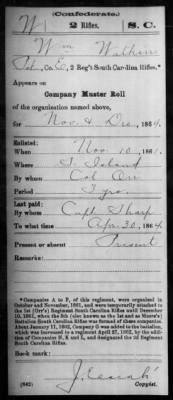 (Confederate.)
W 2 Rifles. S. C.
Wm Watkins
Pvt., Co. E, 2 Reg't South Carolina Rifles.*
Appears on
Company Muster Roll
of the organization named above,
for Nov & Dec, 1864.
Enlisted:
When Nov 10, 1861.
Where S. Island
By whom Col Orr
Period 3 yrs.
Last paid:
By whom Capt Sharp
To what time Apr. 30, 1864.
Present or absent Present
Remarks:
*Companies A to F, of this regiment, were organized in
October and November, 1861, and were temporarily attached to
the 1st (Orr's) Regiment South Carolina Rifles until December
10, 1861, when the 5th (also known as the 1st and Moore's)
Battalion South Carolina Rifles was formed of these companies.
About January 11, 1862, Company G was added to the battalion,
which was increased to a regiment April 27, 1862, by the addition
of Companies H, K and L, and designated the 2d Regiment
South Carolina Rifles.
Book mark:
(642)
Copyist.